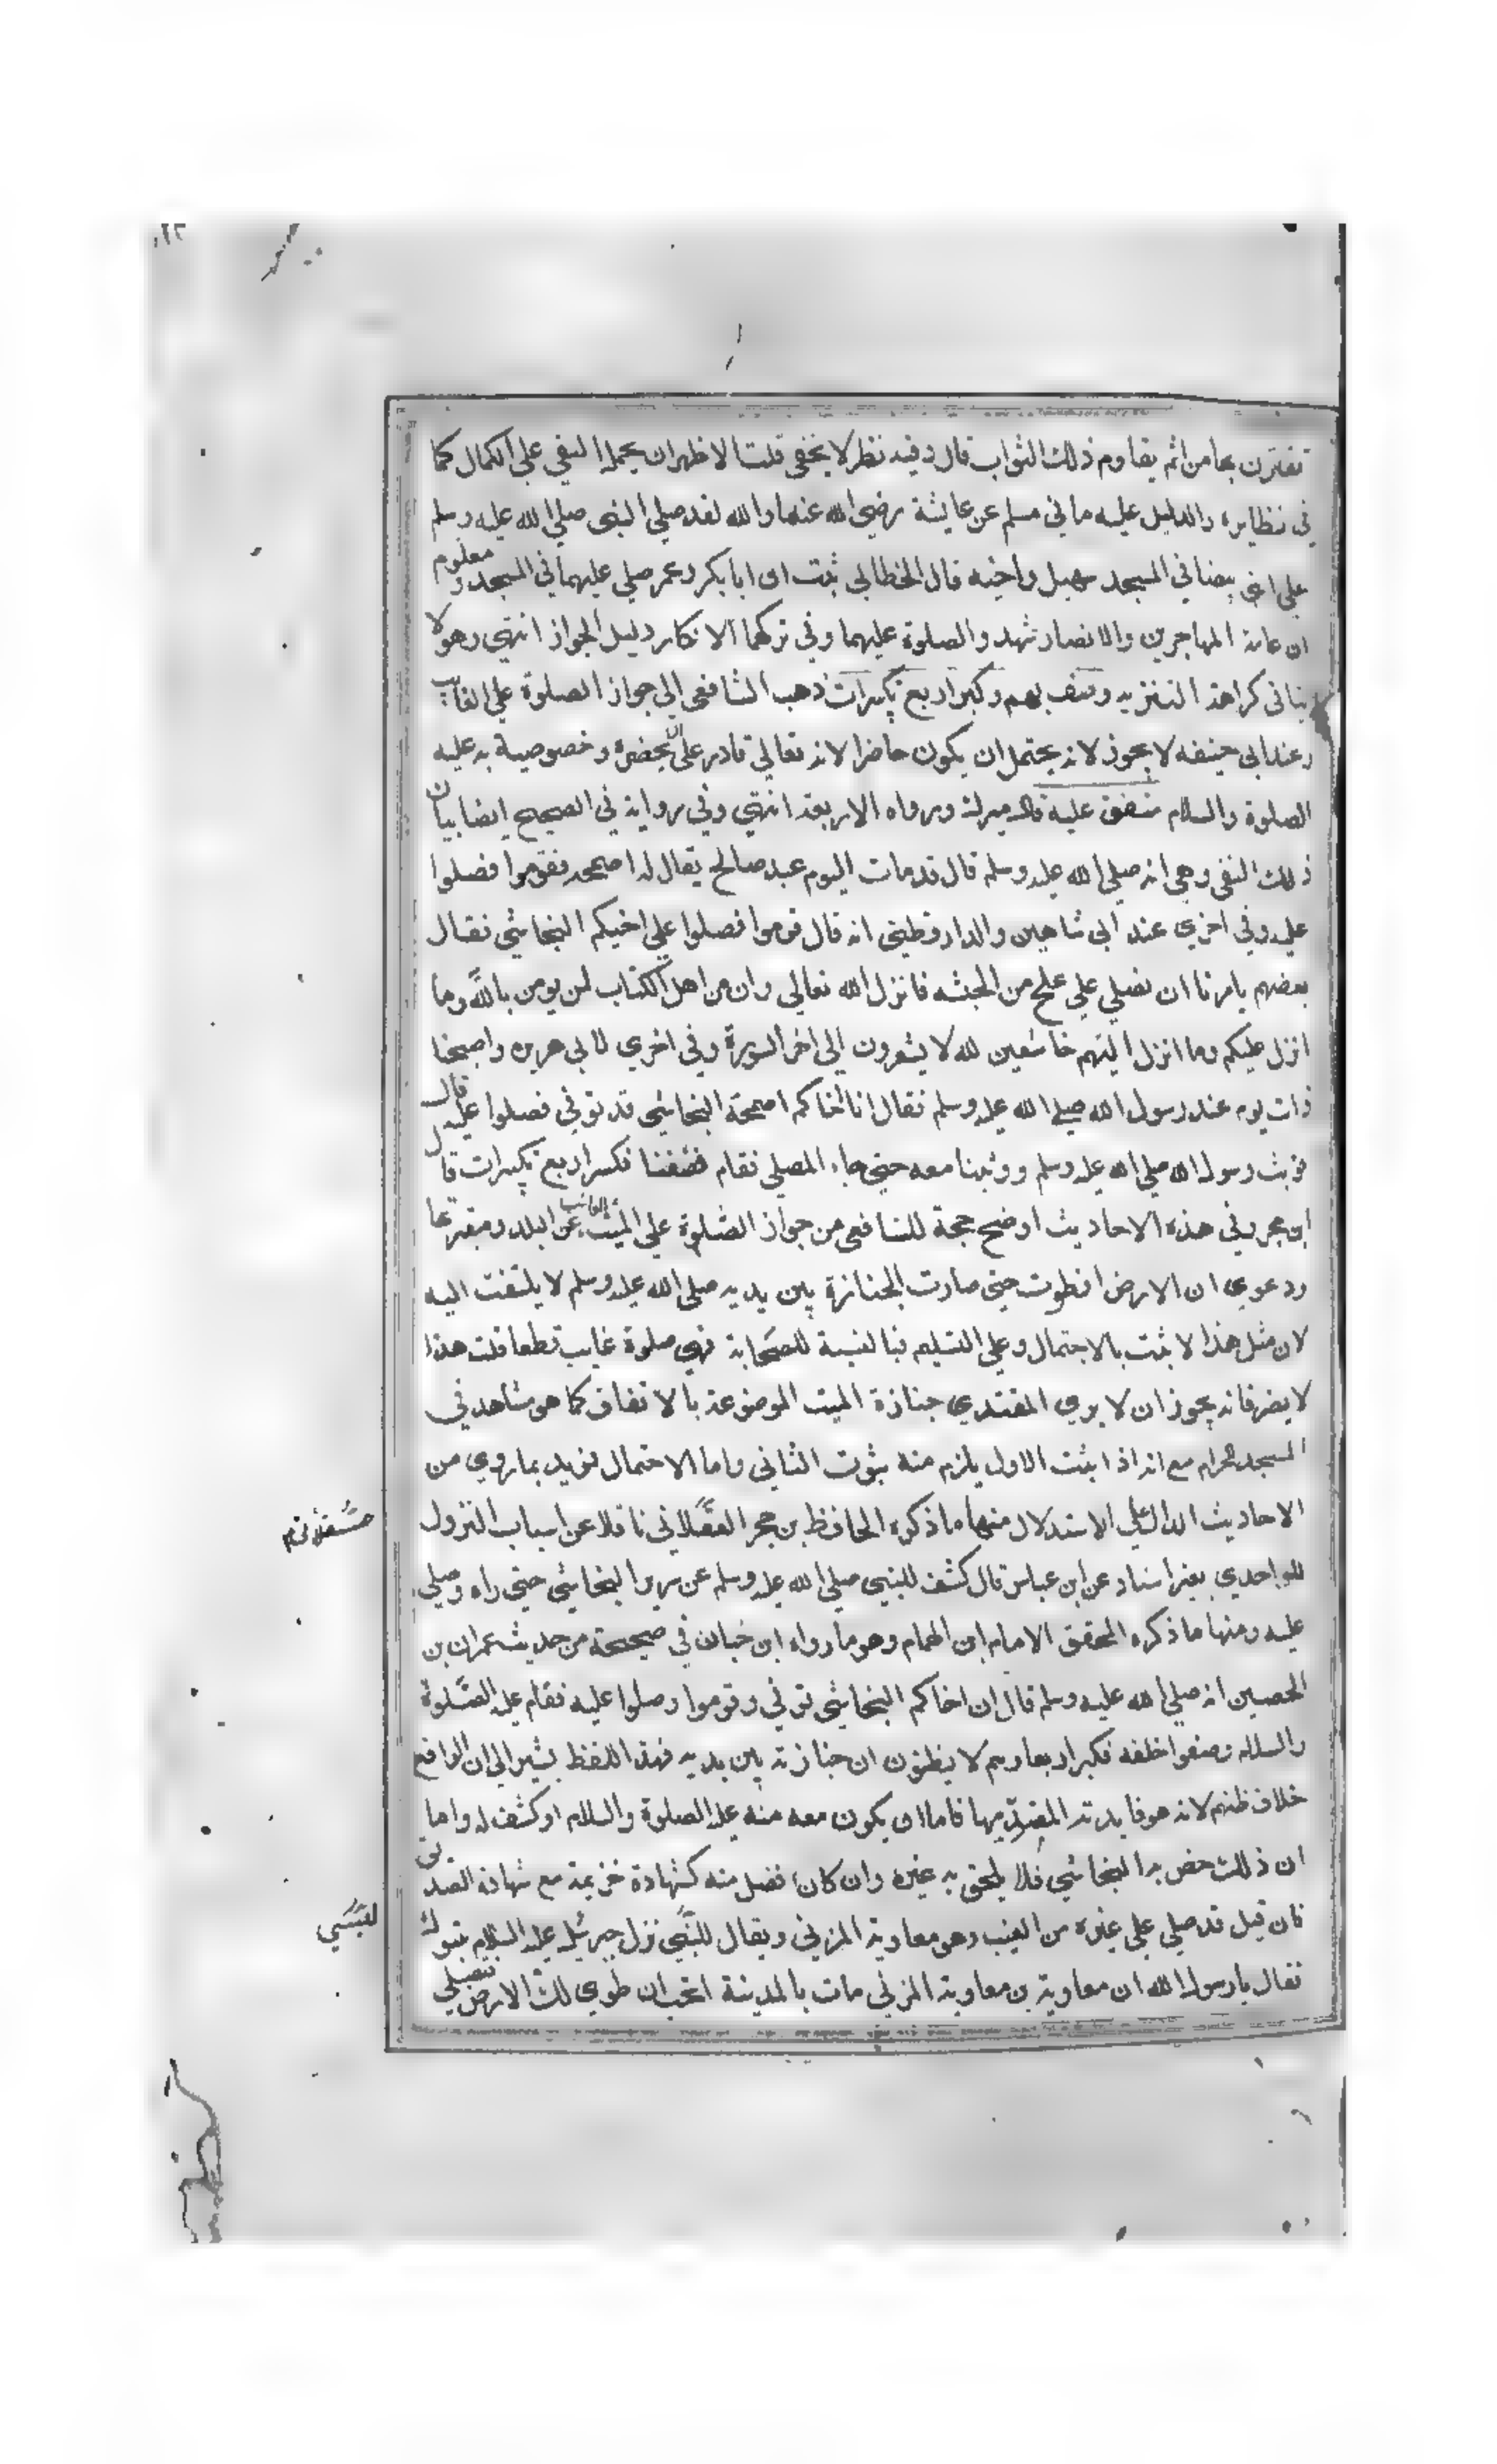 تقترن بها من اثم يقاوم ذلك الثواب قال وفيه نظر لا يخفى قلت الاظهر ان يحمل النفي علي الكمال كما
في نظايره والدليل عليه ما في مسلم عن عايشة رضي الله عنها والله لقد صلي النبى صلي الله عليه وسلم
علي ابني بيضا في المسجد سهيل واخيه قال الخطابي ثبت ان ابا بكر وعمر صلي عليهما في المسجد ومعلوم
ان عامة المهاجرين والانصار شهدوا الصلوة عليهما وفي تركهما الانكار دليل الجواز انتهي وهو لا
ينافى كراهة التنزيه وصف بهم وكبر اربع تكبيرات ذهب الشافعي الي جواز الصلوة علي الغائب
وعند ابى حنيفه لا يجوز لانه يحتمل ان يكون حاضرا لانه تعالي قادر علي ان يحضره وخصوصية به عليه
الصلوة والسلام متفق عليه قاله ميرك ورواه الاربعة انتهي وفي رواية في الصحيح ايضا بيان
ذلك النفى وهي انه صلي الله عليه وسلم قال قد مات اليوم عبد صالح يقال له اصحمه فقوموا فصلوا
عليه وفي اخري عند ابى شاهين والدارقطني انه قال قوموا فصلوا علي اخيكم النجاشي فقال
بعضهم يامرنا ان نصلي علي علج من الحبشه فانزل الله تعالي وان من اهل الكتاب لمن يومن بالله وما
انزل عليكم وما انزل اليهم خاشعين لله لا يشترون الي اخر السورة وفي اخري لابي هريره اصبحنا
ذات يوم عند رسول الله صلي الله عليه وسلم فقال ان اخاكم اصحمة النجاشي قد توفي فصلوا عليه قال
فوثب رسول الله صلي الله عليه وسلم ووثبنا معه حتي جاء المصلي فقام فصففنا فكبر اربع تكبيرات قال
ابن حجر وفي هذه الاحاديث اوضح حجة للشافعي من جواز الصلوة علي الميت الغائب عن البلد ومقبرتها
ودعوي ان الارض انطوت حتي صارت الجنازة بين يديه صلي الله عليه وسلم لا يلتفت اليه
لان مثل هذا لا يثبت بالاحتمال وعلي التسليم فبالنسبة للصحابة فهي صلوة غايب قطعا قلت هذا
لا يضر فانه يجوز ان لا يري المقتدي جنازة الميت الموضوعة بالاتفاق كما هو مشاهد في
المسجد الحرام مع انه اذا ثبت الاول يلزم منه ثبوت الثاني واما الاحتمال فويد بما روي من
الاحاديث الدال علي الاستدلال منها ما ذكره الحافظ بن حجر العسقلانى ناقلا عن اسباب النزول
عسقلانى
للواحدي بغير اسناد عن ابن عباس قال كشف للنبي صلي الله عليه وسلم عن سرير النجاشي حتي راه وصلي
عليه ومنها ما ذكره المحقق الامام ابن الهمام وهو ما رواه ابن حبان في صحيحه من حديث عمران بن
الحصين انه صلي الله عليه وسلم قال ان اخاكم النجاشي توفي وقوموا وصلوا عليه فقام عليه الصلوة
والسلام وصفوا خلفه فكبر اربعا وهم لا يظنون ان جنازته بين يديه فهذا اللفظ يشير الي ان الواقع
خلاف ظنهم لانه هو فايدته المعتد بها فاما ان يكون معه منه عليه الصلوة والسلام او كشف له واما
ان ذلك خص به النجاشي فلا يلحق به غيره وان كان افضل منه كشهادة خزيمة مع شهادة الصديق
فان قيل قد صلي علي غيره من الغيب وهو معاوية المزني ويقال الليثي نزل جبرئيل عليه السلام بتبوك
لليثي
فقال يا رسول الله ان معاوية بن معاوية المزني مات بالمدينة اتحب ان طوي لك الارض فتصلي